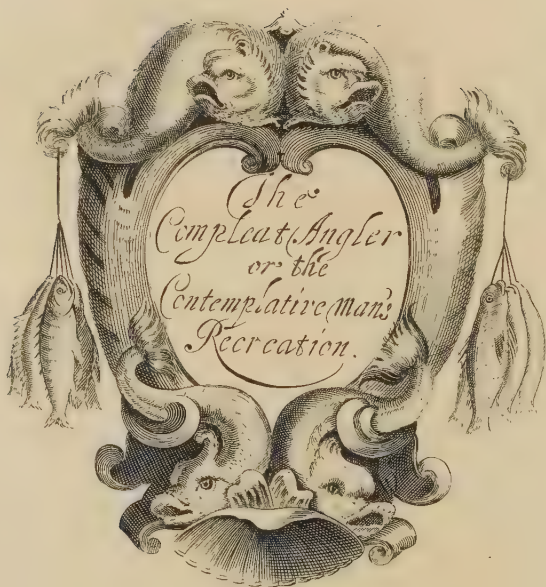 The
Compleat Angler
or the
Contemplative Man's
Recreation.